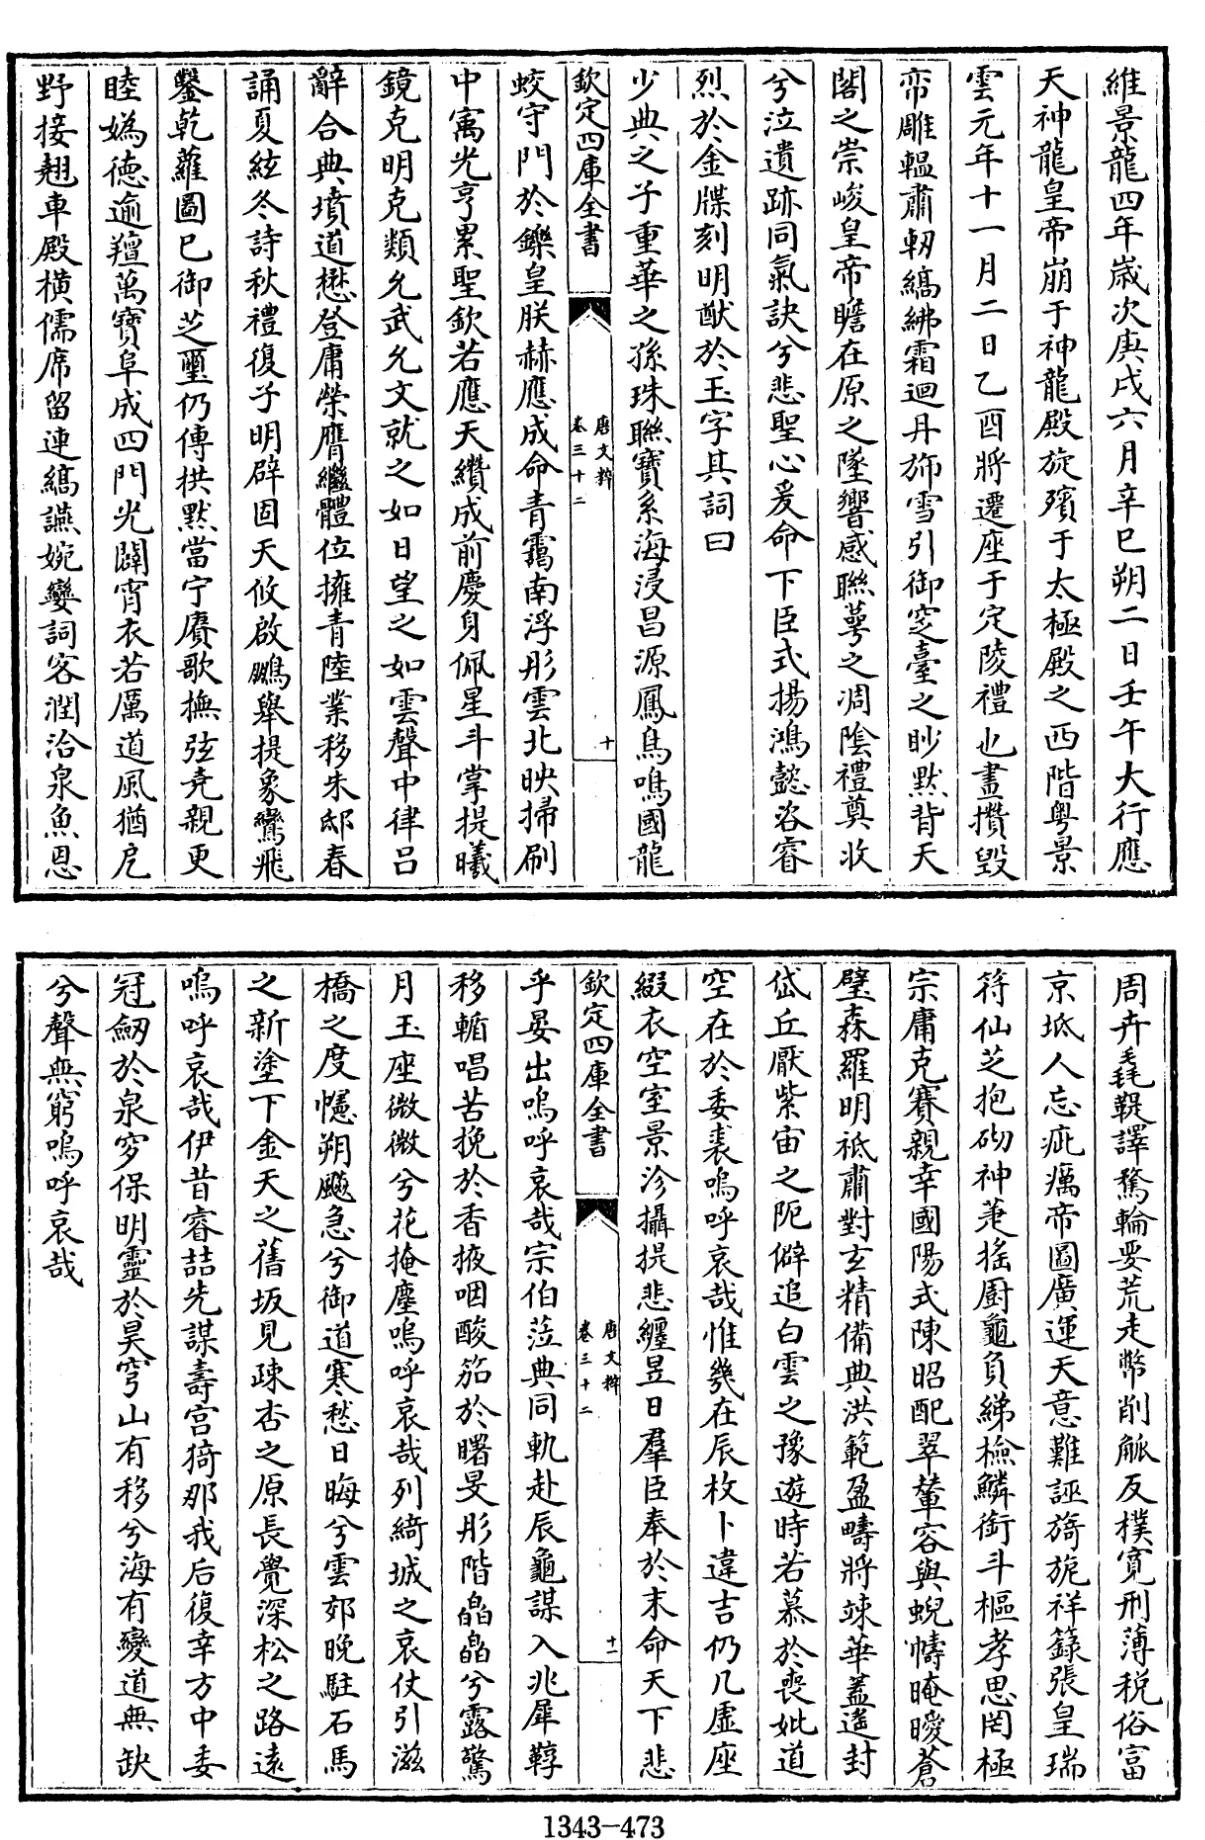 維景龍四年歲次庚戌六月辛巳朔二日壬午大行應
天神龍皇帝崩于神龍殿旋殯于太極殿之西階粵景
雲元年十一月二日乙酉將遷座于定陵禮也畫攢毀
帟雕轀肅軔縞紼霜迴丹旆雪引御窆臺之眇默背天
閣之崇峻皇帝瞻在原之墜響感聯萼之凋陰禮奠收
兮泣遺跡同氣訣兮悲聖心爰命下臣式揚鴻懿洛睿
烈於金牒刻明猷於玉字其詞曰
少典之子重華之孫珠聯寶系海浸昌源鳳鳥鳴國龍
欽定四庫全書
唐文粹
卷三十二
十
蛟守門於鑠皇朕赫應成命青靄南浮彤雲北映掃刷
中寓光亨累聖欽若應天纘成前慶身佩星斗掌提曦
鏡克明克類允武允文就之如日望之如雲聲中律呂
辭合典墳道懋登庸榮膺繼體位擁青陸業移朱邸春
誦夏絃冬詩秋禮復子明辟固天攸啟鵬舉提象鸞飛
鑿乾蘿圖已御芝璽仍傳拱默當宁賡歌撫弦堯親更
睦媯德逾羶萬寶阜成四門光闢宵衣若厲道風猶戹
野接翹車殿橫儒席留連縞讌婉孌詞客潤洽泉魚恩
周卉毳鞮譯騖輪要荒走幣削觚反樸寛刑薄税俗富
京坻人忘疵癘帝圖廣運天意難誣旖旎祥籙張皇瑞
符仙芝抱砌神萐搖厨龜負綈檢鱗銜斗樞孝思罔極
宗庸克賽親幸國陽式陳昭配翠輦容與蜺幬晻曖蒼
璧森羅明祗肅對玄精備典洪範盈疇將竦華蓋遥封
岱丘厭紫宙之阨僻追白雲之豫遊時若慕於喪妣道
空在於委裘嗚呼哀哉惟幾在辰枚卜違吉仍几虛座
綴衣空室景沴攝提悲纏昱日羣臣奉於末命天下悲
欽定四庫全書
唐文粹
卷三十二
十一
乎晏出嗚呼哀哉宗伯蒞典同軌赴辰龜謀入兆犀䡅
移輴唱苦挽於香掖咽酸笳於曙旻彤階皛皛兮露驚
月玉座微微兮花掩塵嗚呼哀哉列綺城之哀仗引滋
橋之度幰朔飈急兮御道寒愁日晦兮雲郊晚駐石馬
之新塗下金天之舊坂見疎杏之原長覺深松之路遠
嗚呼哀哉伊昔睿喆先謀壽宮猗那我后復幸方中委
冠劒於泉穸保明靈於昊穹山有移兮海有變道無缺
兮聲無窮嗚呼哀哉
1343-473